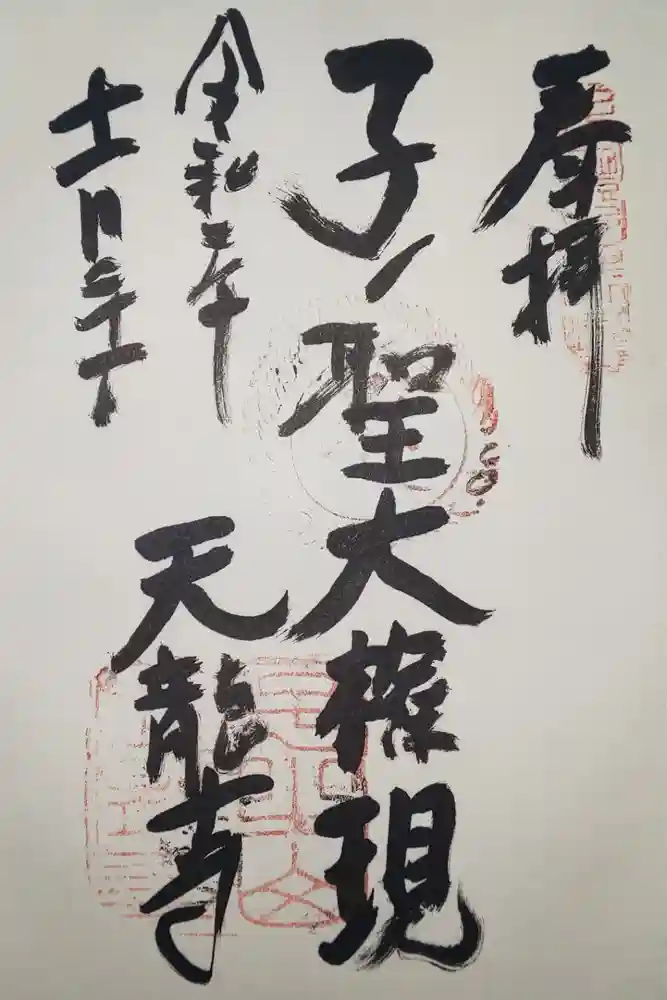 奉拝
子ノ聖大権現
令和二年
十一月三十日
天龍寺